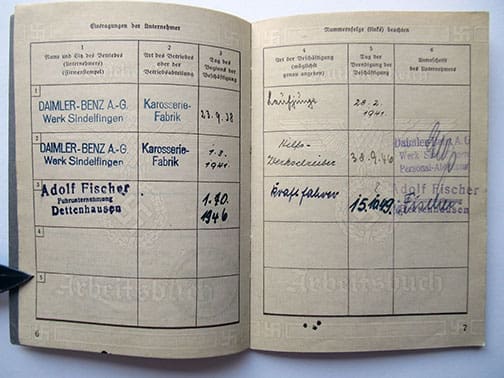 Eintragungen der Unternehmer
1
Name und Sitz des Betriebes
(Unternehmers)
(Firmenstempel)
2
Art des Betriebes
oder der
Betriebsabteilung
3
Tag des
Beginns der
Beschäftigung
1
DAIMLER-BENZ A.-G.
Werk Sindelfingen
Karosserie-
Fabrik
23.9.38
2
DAIMLER-BENZ A.-G.
Werk Sindelfingen
Karosserie-
Fabrik
1.3.
1941
3
Adolf Fischer
Fuhrunternehmung
Dettenhausen
1.10.
1946
4
5
Arbeitsbuch
6
Nummernfolge (links) beachten
4
Art der Beschäftigung
(möglichst
genau angeben)
5
Tag der
Beendigung der
Beschäftigung
6
Unterschrift
des Unternehmers
Laufjunge
28.2.
1941.
Hilfs-
Werkschreiber
30.9.46
Daimler-Benz A.-G.
Werk Sindelfingen
Personal-Abteilung
Kraftfahrer
15.10.49.
Adolf Fischer
Dettenhausen
Fischer
Arbeitsbuch
7